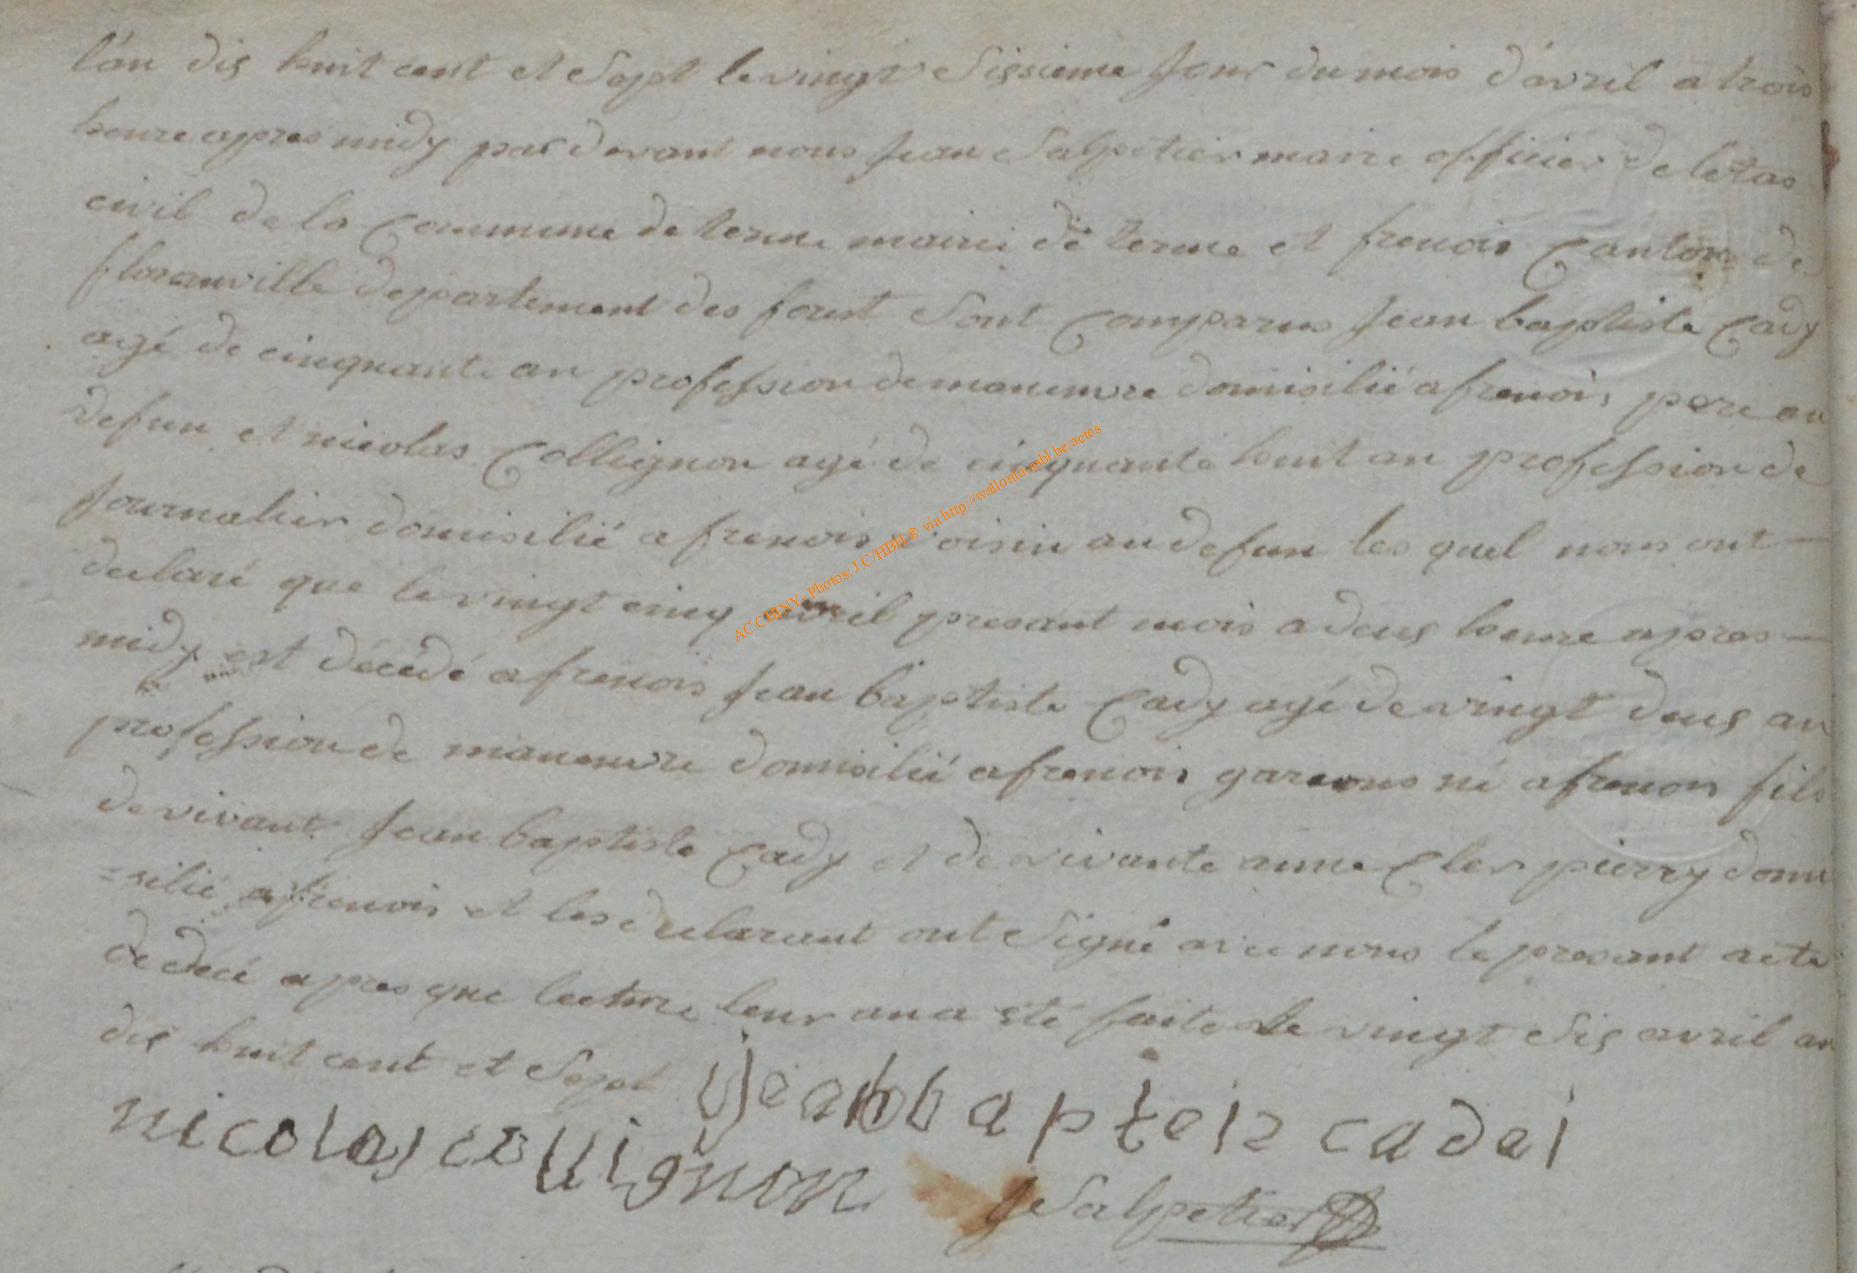 l'an dis huit cent et Sept le vingt Sissieme Jour du mois d'avril a trois
heure apres midy par devant nous Jean Salpetier maire officier de letas
civil de la Commune de terme mairie de terme et frenois Canton de
floranville departement des forest Sont Comparus Jean baptiste Cady
agé de cinquante an profession de maneuvre domisilié a frenois pere au
defun et nicolas Collignon agé de cinquante huit an profession de
Journalier domisilié a frenois voisin au defun les quel nous ont
declaré que le vingt cinq avril presant mois a deus heure apres
midy est décédé a frenois Jean baptiste Cady agé de vingt deus an
profession de maneuvre domisilié a frenois garsons né a frenois fils
de vivant Jean baptiste Cady et de vivante anne Cler pierry domi
=silié a frenois et les declarant ont Signé avec nous le presant acte
de decé apres que lecture leur an a été faite le vingt Sis avril an
dis huit cent et Sept Jean bapteis cadei
nicolas collignon
J Salpetier
AC CHINY - Photos: J.C HBH® via http://wallonia.asbl.be/actes